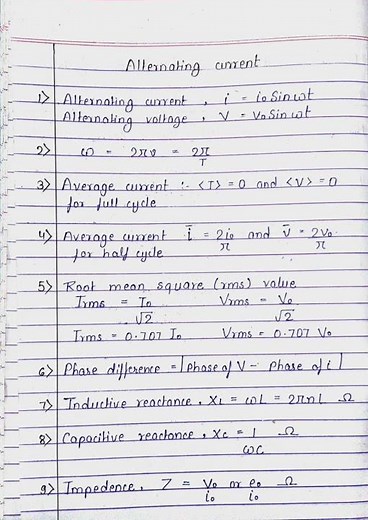 Alternating current
1) Alternating current , i = i₀ Sin ωt
Alternating voltage , V = V₀ Sin ωt
2) ω = 2πν = 2π/T
3) Average current :- <I> = 0 and <V> = 0
for full cycle
4) Average current i̅ = 2i₀/π and v̅ = 2V₀/π
for half cycle
5) Root mean square (rms) value
Irms = I₀/√2 Vrms = V₀/√2
Irms = 0.707 I₀ Vrms = 0.707 V₀
6) Phase difference = |Phase of V - Phase of i|
7) Inductive reactance , XL = ωL = 2πnL Ω
8) Capacitive reactance , Xc = 1/ωC Ω
9) Impedence , Z = V₀/i₀ or e₀/i₀ Ω